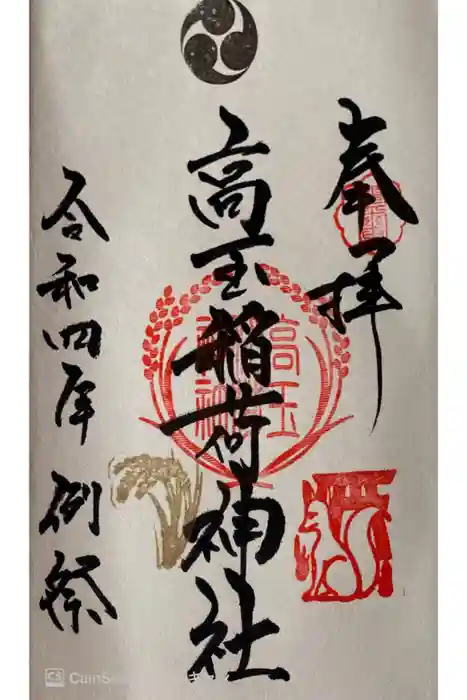 奉拝
高玉稲荷神社
令和四年 例祭
高玉
CamS